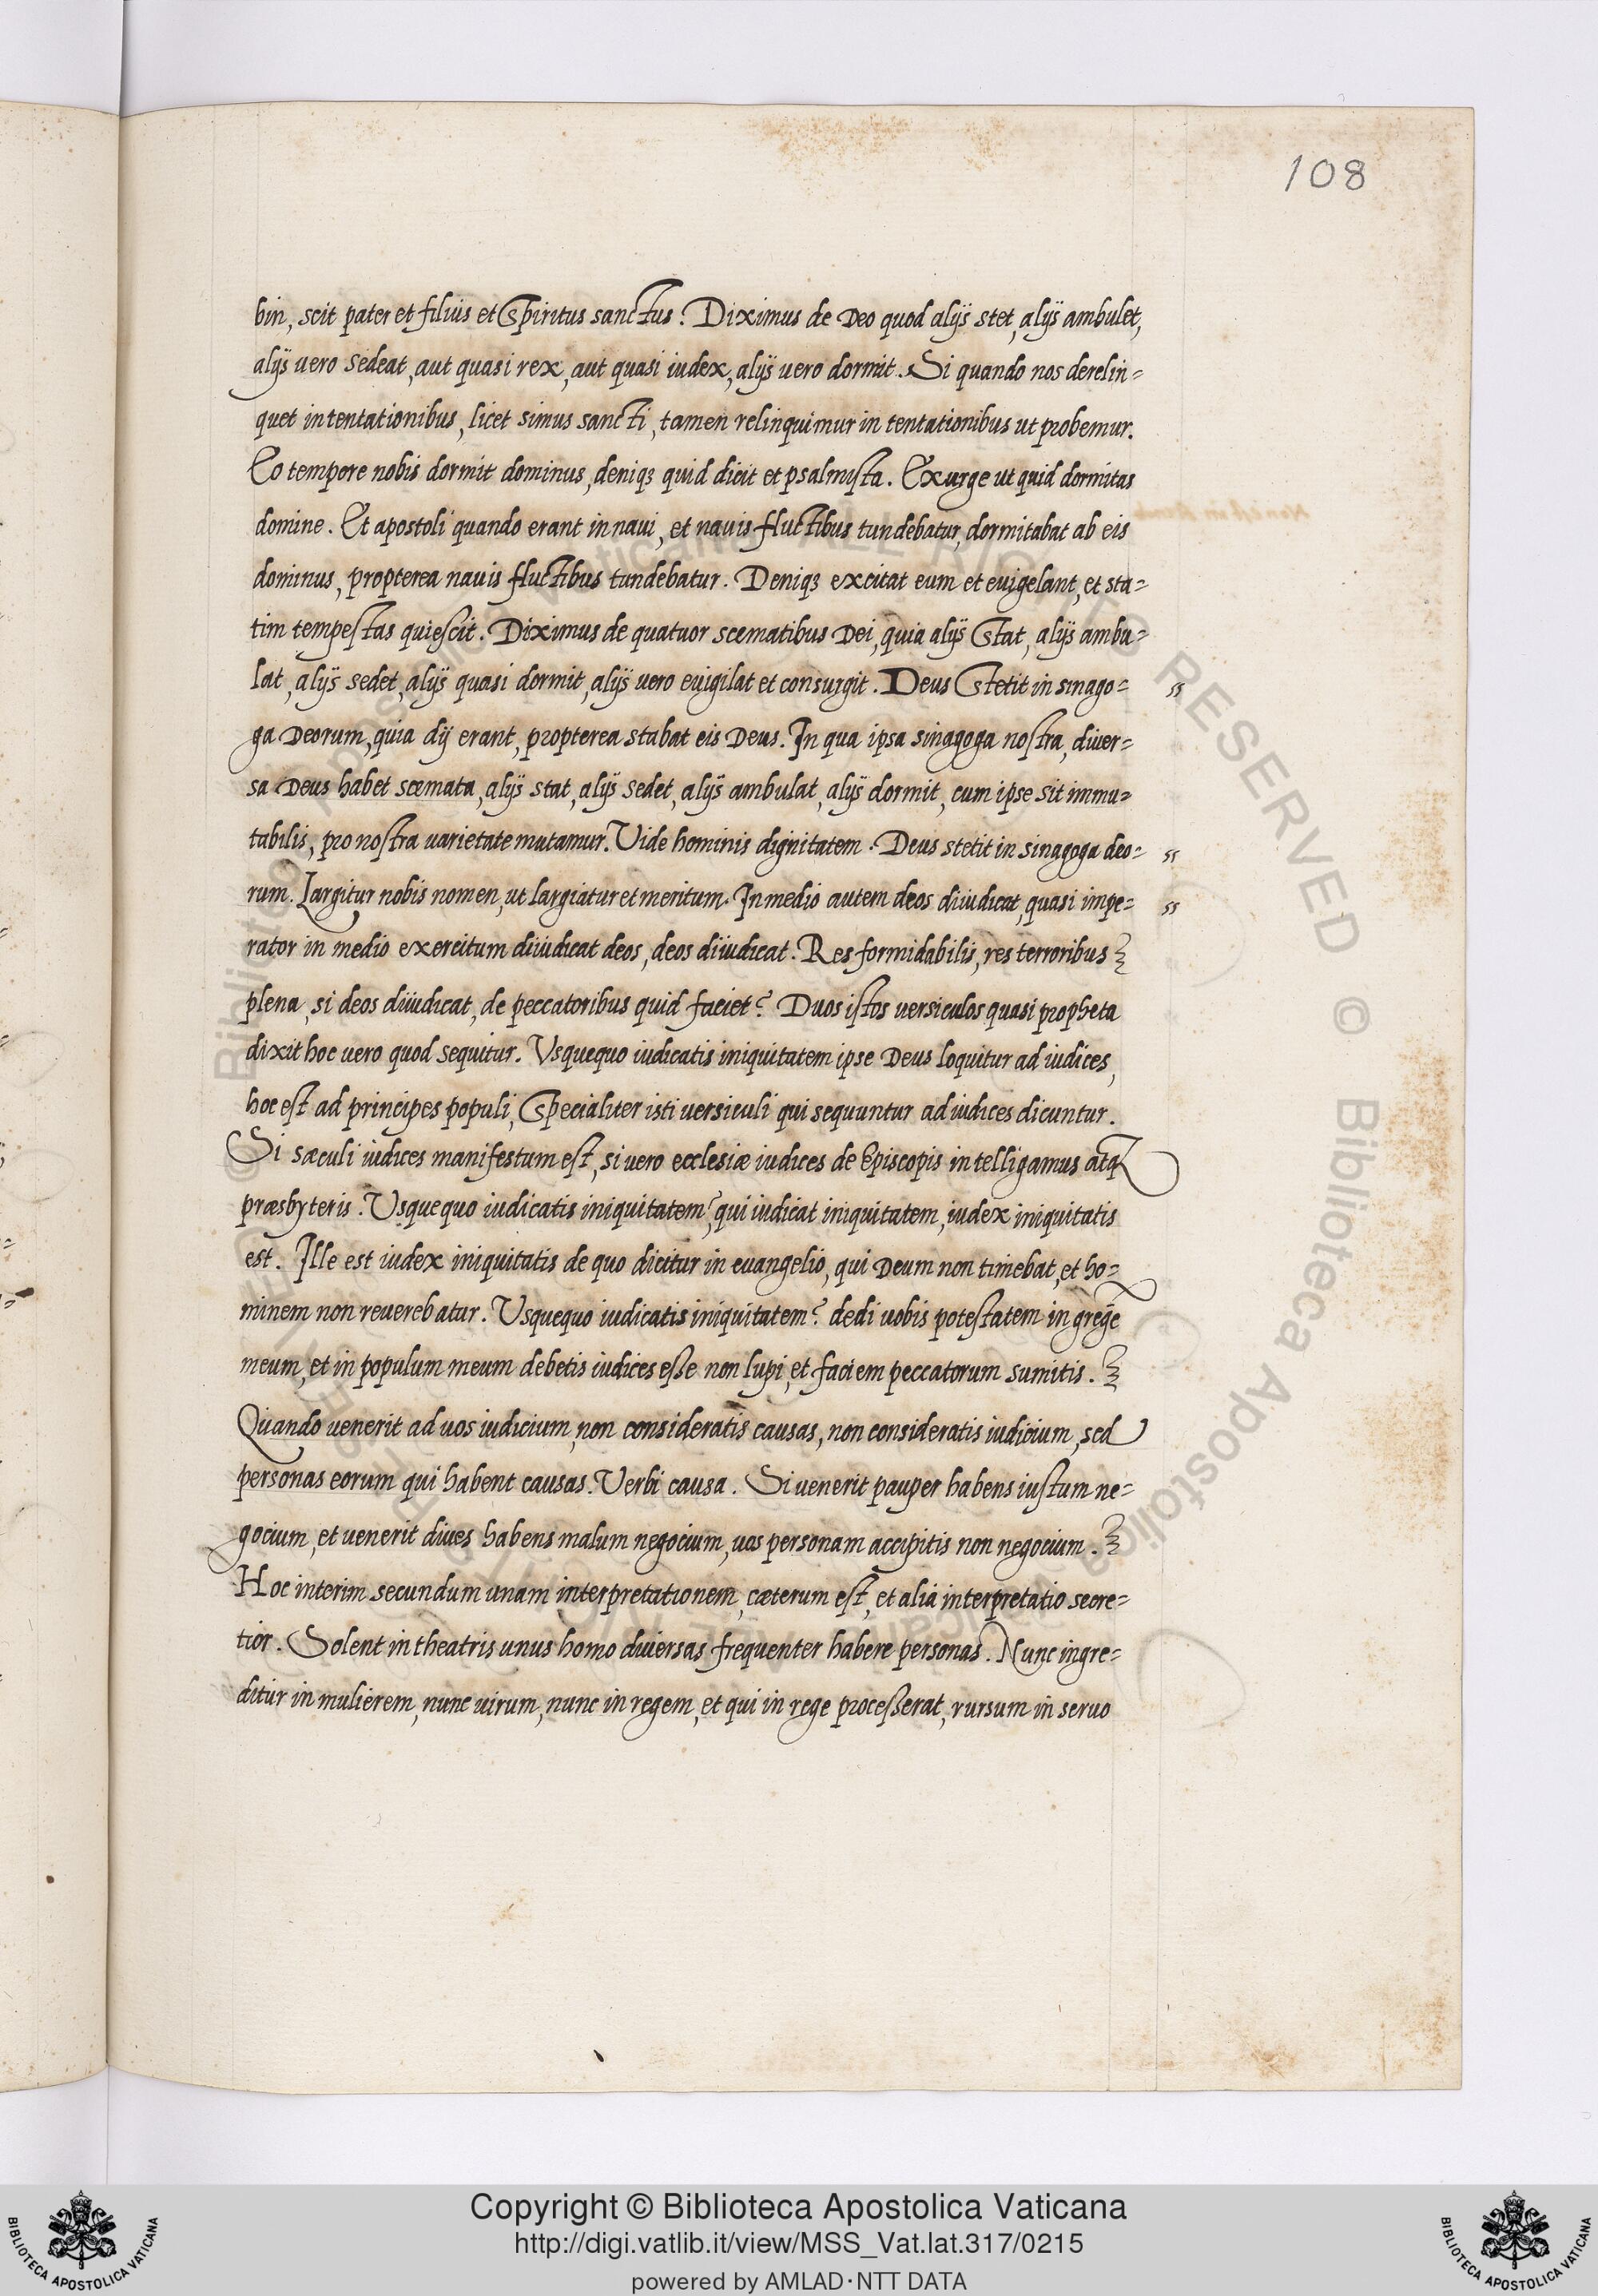 108
bin, scit pater et filius et Spiritus sanctus. Diximus de Deo quod alijs stet, alijs ambulet,
alijs vero sedeat, aut quasi rex, aut quasi iudex, alijs vero dormit. Si quando nos derelin=
quet in tentationibus, licet simus sancti, tamen relinquimur in tentationibus ut probemur.
Eo tempore nobis dormit dominus, deniqʒ quid dicit et psalmista. Exurge ut quid dormitas
domine. Et apostoli quando erant in naui, et nauis fluctibus tundebatur, dormitabat ab eis
dominus, propterea nauis fluctibus tundebatur. Deniqʒ excitat eum et euigelant, et sta=
tim tempestas quiescit. Diximus de quatuor scematibus Dei, quia alijs Stat, alijs ambu=
lat, alijs sedet, alijs quasi dormit, alijs vero euigilat et consurgit. Deus Stetit in sinago= ss
ga Deorum, quia dij erant, propterea stabat eis Deus. In qua ipsa sinagoga nostra, diver=
sa Deus habet scemata, alijs stat, alijs sedet, alijs ambulat, alijs dormit, cum ipse sit immu=
tabilis, pro nostra uarietate mutamur. Vide hominis dignitatem. Deus stetit in sinagoga deo= ss
rum. Largitur nobis nomen, ut largiatur et meritum. In medio autem deos diiudicat, quasi impe= ss
rator in medio exercitum diiudicat deos, deos diiudicat. Res formidabilis, res terroribus
plena, si deos diiudicat, de peccatoribus quid faciet? Duos istos uersiculos quasi propheta
dixit hoc vero quod sequitur. Vsquequo iudicatis iniquitatem ipse Deus loquitur ad iudices,
hoc est ad principes populi, Specialiter isti uersiculi qui sequuntur ad iudices dicuntur.
Si sæculi iudices manifestum est, si vero ecclesiæ iudices de Episcopis intelligamus atqʒ
præsbyteris. Vsquequo iudicatis iniquitatem? qui iudicat iniquitatem, iudex iniquitatis
est. Ille est iudex iniquitatis de quo dicitur in euangelio, qui Deum non timebat, et ho=
minem non reuerebatur. Vsquequo iudicatis iniquitatem? dedi uobis potestatem in gregē
meum, et in populum meum debetis iudices esse non lupi, et faciem peccatorum sumitis.
Quando uenerit ad uos iudicium, non consideratis causas, non consideratis iudicium, sed
personas eorum qui habent causas. Verbi causa. Si uenerit pauper habens iustum ne=
gocium, et uenerit diues habens malum negocium, uos personam accipitis non negocium.
Hoc interim secundum unam interpretationem, cæterum est, et alia interpretatio secre=
tior. Solent in theatris unus homo diuersas frequenter habere personas. Nunc ingre=
ditur in mulierem, nunc uirum, nunc in regem, et qui in rege processerat, rursum in seruo
Copyright © Biblioteca Apostolica Vaticana
http://digi.vatlib.it/view/MSS_Vat.lat.317/0215
powered by AMLAD·NTT DATA